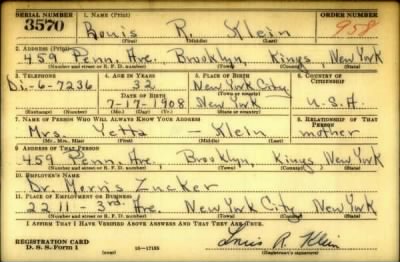 SERIAL NUMBER 1. NAME (Print) ORDER NUMBER
3570 Louis R. Klein 958
(First) (Middle) (Last)
2. ADDRESS (Print)
459 Penn. Ave. Brooklyn, Kings, New York
(Number and street or R. F. D. number) (Town) (County) (State)
3. TELEPHONE 4. AGE IN YEARS 5. PLACE OF BIRTH 6. COUNTRY OF CITIZENSHIP
Di-6-7236 32 New York City
DATE OF BIRTH (Town or county)
7-17-1908 New York U.S.A.
(Exchange) (Number) (Mo.) (Day) (Yr.) (State or country)
7. NAME OF PERSON WHO WILL ALWAYS KNOW YOUR ADDRESS 8. RELATIONSHIP OF THAT PERSON
Mrs. Yetta — Klein mother
(Mr., Mrs., Miss) (First) (Middle) (Last)
9. ADDRESS OF THAT PERSON
459 Penn. Ave, Brooklyn, Kings, New York
(Number and street or R. F. D. number) (Town) (County) (State)
10. EMPLOYER'S NAME
Dr. Morris Zucker
11. PLACE OF EMPLOYMENT OR BUSINESS
2211 - 3rd Ave. New York City New York
(Number and street or R. F. D. number) (Town) (County) (State)
I AFFIRM THAT I HAVE VERIFIED ABOVE ANSWERS AND THAT THEY ARE TRUE.
REGISTRATION CARD
D. S. S. Form 1 (over) 16-17105 Louis R. Klein
(Registrant's signature)